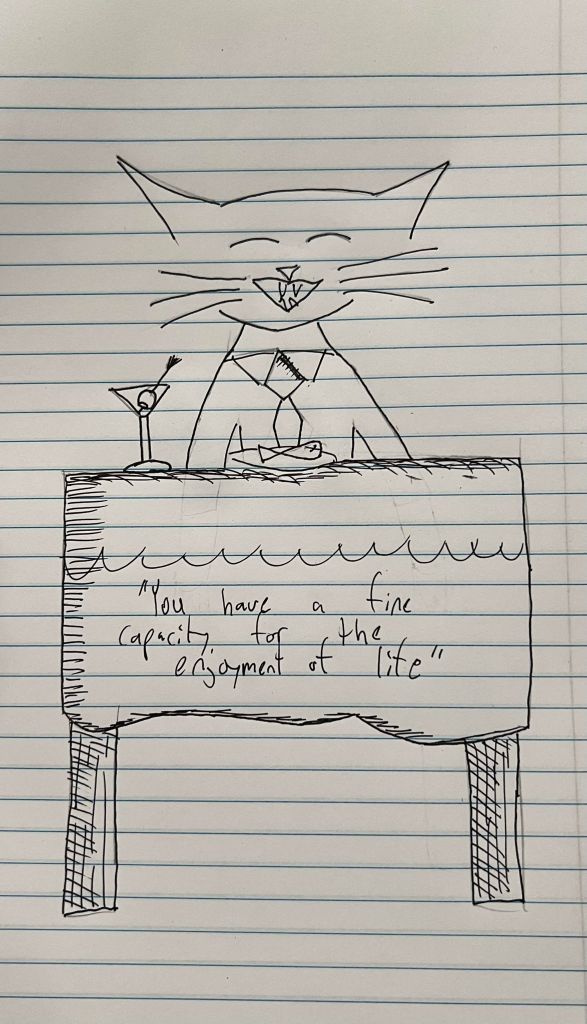 "You have a fine
capacity for the
enjoyment of life"